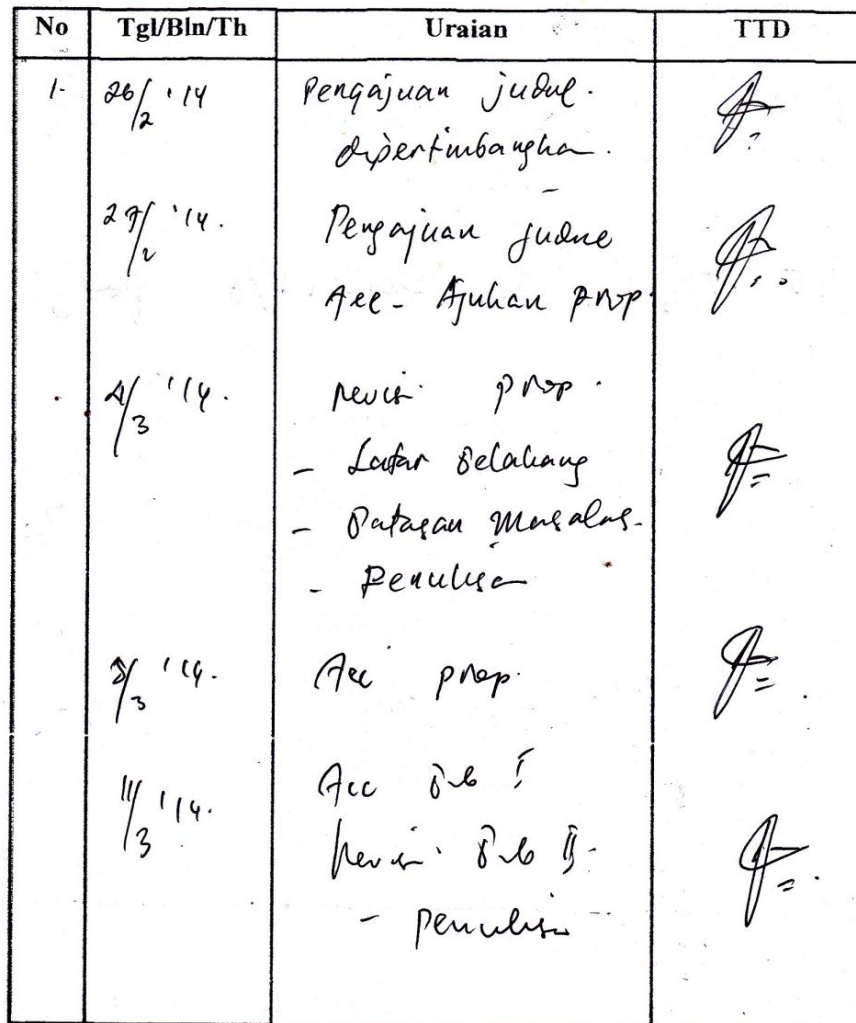 No Tgl/Bln/Th Uraian TTD
1- 26/2 '14 Pengajuan judul.
dipertimbangkan.
27/2 '14. Pengajuan judul
Acc - Ajukan prop.
4/3 '14. revisi prop.
- Latar Belakang
- Batasan Masalah.
- Penulisan
/3 '14. Acc prop.
11/3 '14. Acc Bab I
Revisi Bab II-
- penulisan